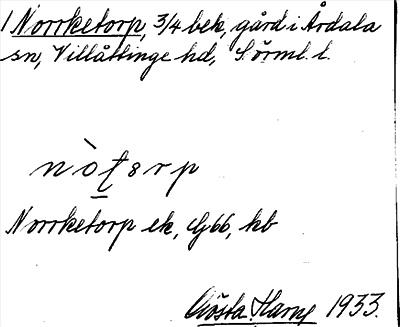 1 Norrketorp, 3/4 bek, gård i Årdala
sn, Villåttinge hd, Sörml. l.
nò̱tərp
Norrketorp ek, Gbb, kb
Gösta Harne 1933.